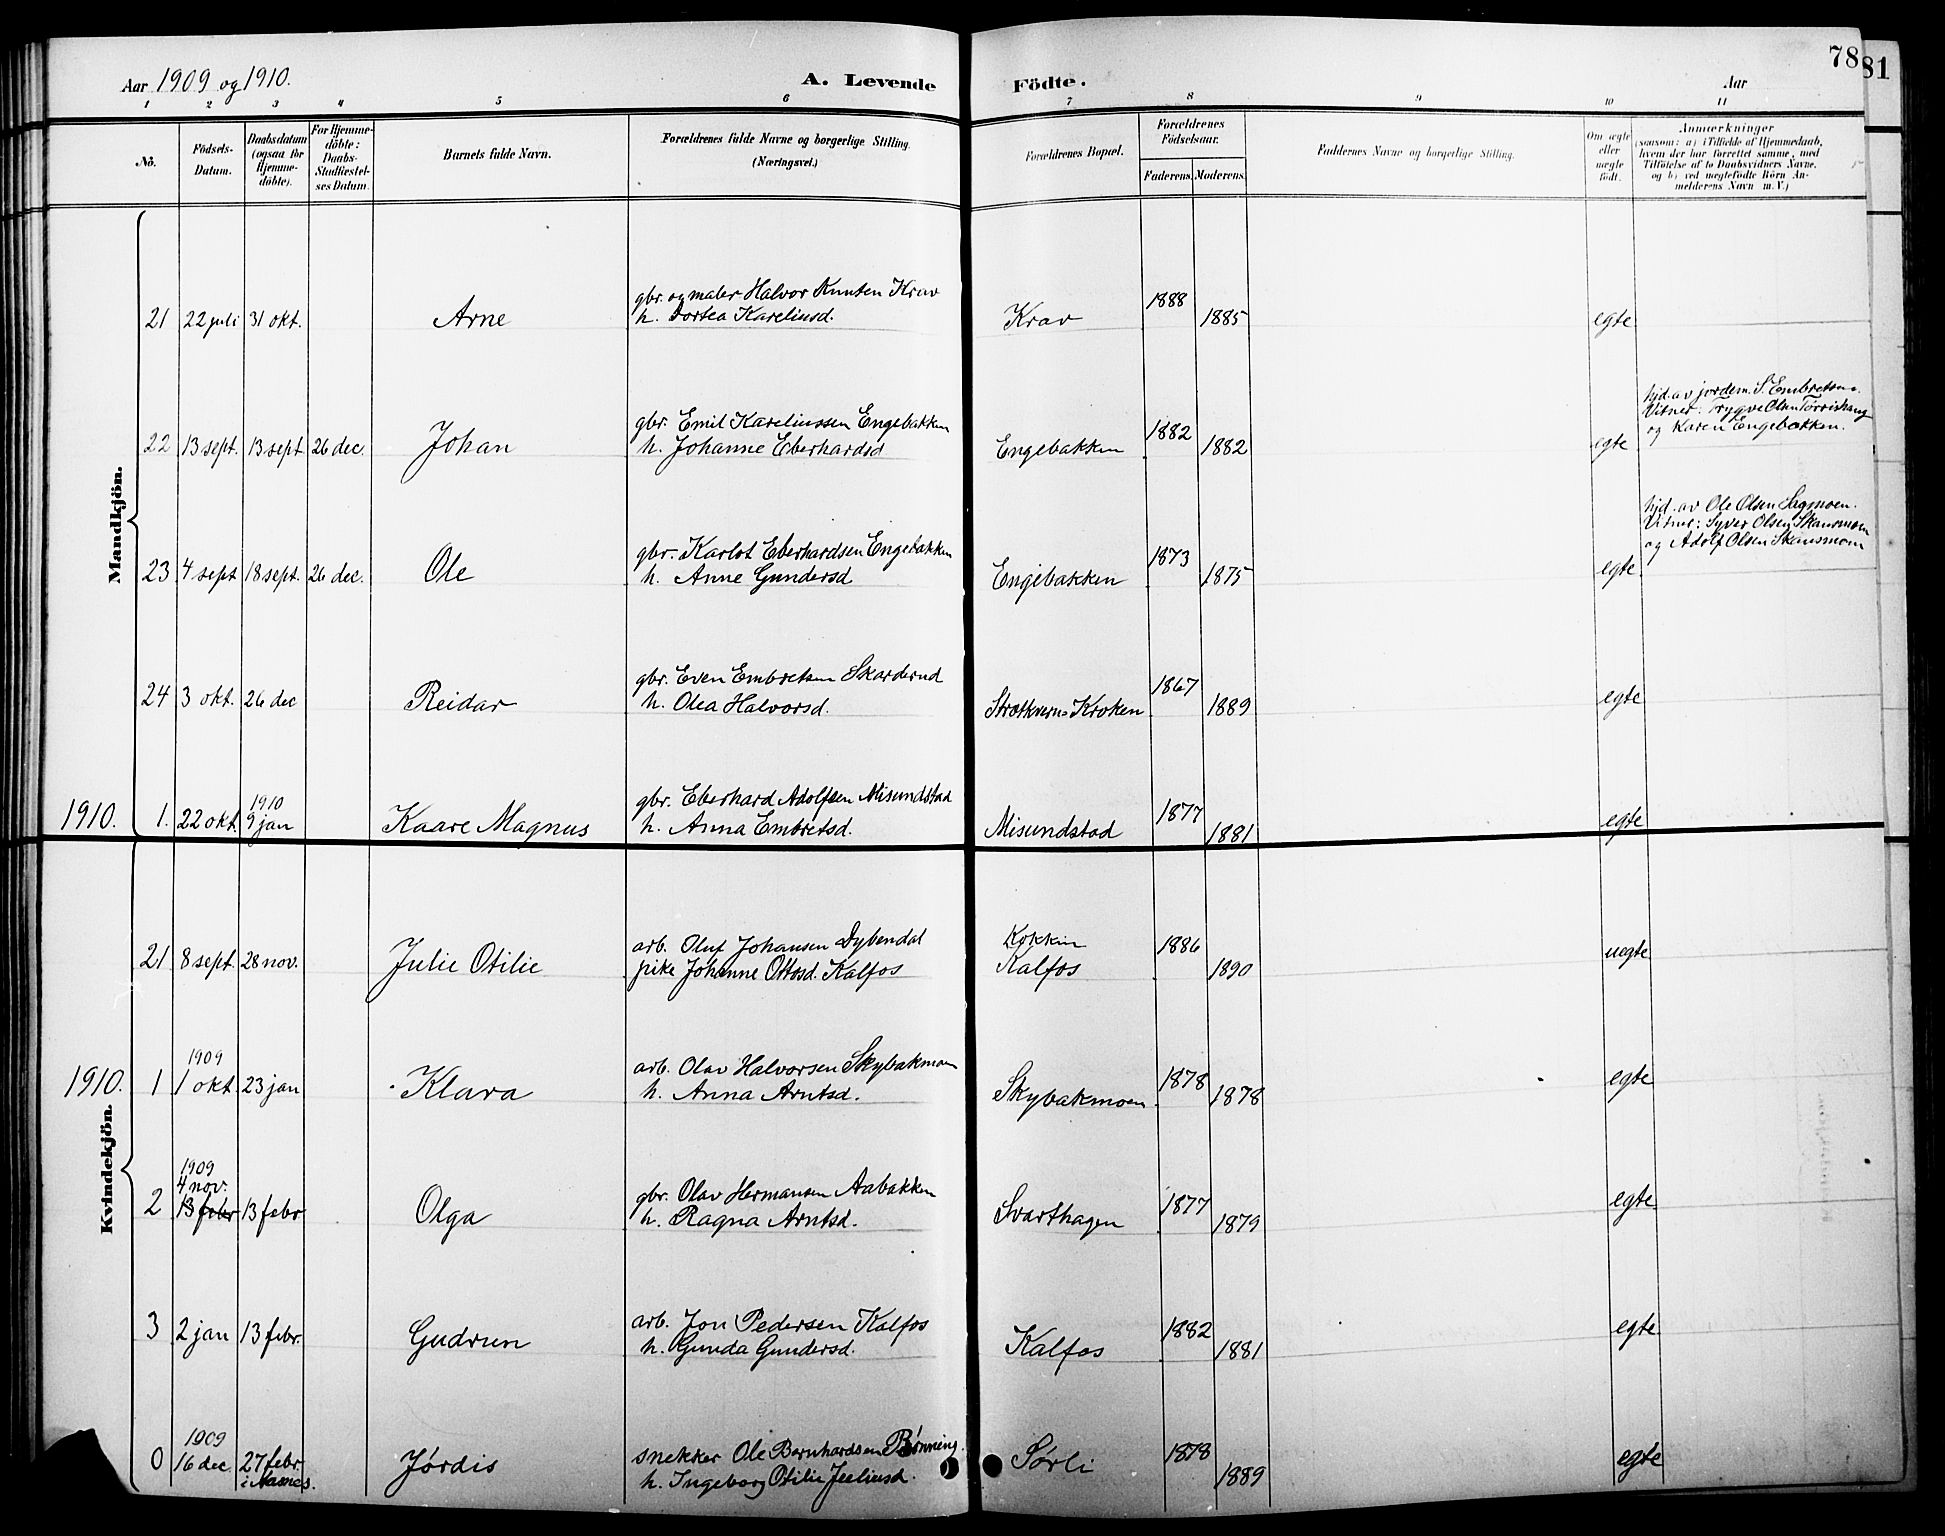 78
81
Aar 1909 og 1910.
A. Levende Födte.
Aar
1 2 3 4 5 6 7 8 9 10 11
No.
Födsels-
Datum.
Daabsdatum
(ogsaa for
Hjemme-
döbte).
For Hjemme-
döbte:
Daabs-
Stadfæstel-
ses Datum.
Barnets fulde Navn.
Forældrenes fulde Navne og borgerlige Stilling.
(Næringsvei.)
Forældrenes Bopæl.
Forældrenes
Födselsaar.
Faderens. Moderens.
Faddernes Navne og borgerlige Stilling.
Om ægte
eller
uægte
födt.
Anmærkninger
(saasom: a) i Tilfælde af Hjemmedaab,
hvem der har forrettet samme, med
Tilföielse af to Daabsvidners Navne,
og b) ved uægtefödte Börn An-
melderens Navn m. V.)
Mandkjön.
gbr. og maler Halvor Knutsen Krav 1888
21 22 juli 31 okt. Arne h. Dortea Kareliusd. Krav 1885 egte
hjd. av jordem. S. Embretsen.
Vitner: Trygve Olsen Torrishaug
og Karen Engebakken.
gbr. Emil Kareliussen Engebakken 1882
22 13 sept. 13 sept. 26 dec. Johan h. Johanne Eberhardsd Engebakken 1882 egte
hjd. av Ole Olsen Sagmoen.
Vitner: Syver Olsen Skansmoen
og Adolf Olsen Skansmoen
gbr. Karlot Eberhardsen Engebakken 1873
23 4 sept 18 sept. 26 dec. Ole h. Anne Gundersd Engebakken 1875 egte
gbr. Even Embretsen Skarderud 1867
24 3 okt. 26 dec Reidar h. Olea Halvorsd. Kroken 1889 egte
1910 gbr. Eberhard Adolfsen Misundstad 1877
1910. 1. 22 okt. 9 jan Kaare Magnus h. Anna Embretsd. Misundstad 1881 egte
Kvindekjön.
arb. Oluf Johansen Dybendal 1886
21 8 sept. 28 nov. Julie Otilie pike Johanne Ottosd. Kalfos Kalfos 1890 uegte
1909 arb. Olav Halvorsen Skybakmoen 1878
1910. 1 1 okt. 23 jan Klara h. Anna Arntsd. Skybakmoen 1878 egte
1909
4 nov. gbr. Olav Hermansen Aabakken 1877
2 13 febr 13 febr Olga h. Ragna Arntsd. Svarthagen 1879 egte
arb. Jon Pedersen Kalfos 1882
3 2 jan 13 febr. Gudrun h. Gunda Gundersd. Kalfos 1881 egte
1909 snekker Ole Bernhardsen Rønning. 1878
0 16 dec. 27 febr. Jørdis h. Ingeborg Otilie Jeeliusd. Sørli 1889 egte
i Aasnes.